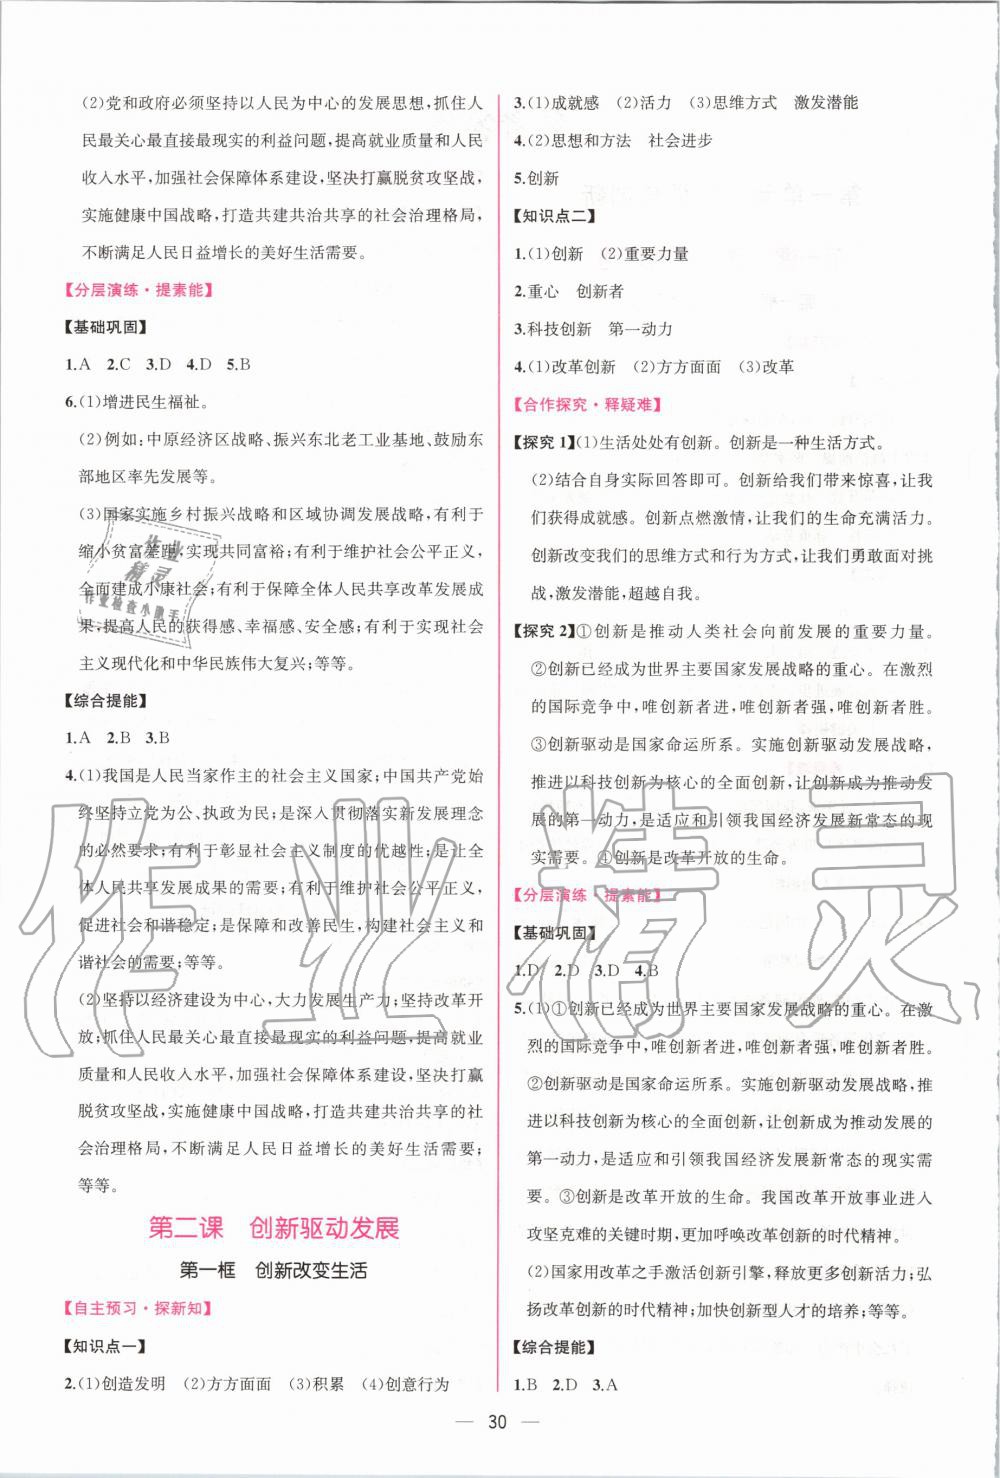 (2)党和政府必须坚持以人民为中心的发展思想,抓住人
民最关心最直接最现实的利益问题,提高就业质量和人民
收入水平,加强社会保障体系建设,坚决打赢脱贫攻坚战,
实施健康中国战略,打造共建共治共享的社会治理格局,
不断满足人民日益增长的美好生活需要。
【分层演练·提素能】
【基础巩固】
1.A 2.C 3.D 4.D 5.B
6.(1)增进民生福祉。
(2)例如:中原经济区战略、振兴东北老工业基地、鼓励东
部地区率先发展等。
(3)国家实施乡村振兴战略和区域协调发展战略,有利于
缩小贫富差距,实现共同富裕;有利于维护社会公平正义,
全面建成小康社会;有利于保障全体人民共享改革发展成
果,提高人民的获得感、幸福感、安全感;有利于实现社会
主义现代化和中华民族伟大复兴;等等。
【综合提能】
1.A 2.B 3.B
4.(1)我国是人民当家作主的社会主义国家;中国共产党始
终坚持立党为公、执政为民;是深入贯彻落实新发展理念
的必然要求;有利于彰显社会主义制度的优越性;是让全
体人民共享发展成果的需要;有利于维护社会公平正义,
促进社会和谐稳定;是保障和改善民生,构建社会主义和
谐社会的需要;等等。
(2)坚持以经济建设为中心,大力发展生产力;坚持改革开
放;抓住人民最关心最直接最现实的利益问题,提高就业
质量和人民收入水平,加强社会保障体系建设,坚决打赢
脱贫攻坚战,实施健康中国战略,打造共建共治共享的社
会治理格局,不断满足人民日益增长的美好生活需要;
等等。
第二课 创新驱动发展
第一框 创新改变生活
【自主预习·探新知】
【知识点一】
2.(1)创造发明 (2)方方面面 (3)积累 (4)创意行为
3.(1)成就感 (2)活力 (3)思维方式 激发潜能
4.(2)思想和方法 社会进步
5.创新
【知识点二】
1.(1)创新 (2)重要力量
2.重心 创新者
3.科技创新 第一动力
4.(1)改革创新 (2)方方面面 (3)改革
【合作探究·释疑难】
【探究1】(1)生活处处有创新。创新是一种生活方式。
(2)结合自身实际回答即可。创新给我们带来惊喜,让我
们获得成就感。创新点燃激情,让我们的生命充满活力。
创新改变我们的思维方式和行为方式,让我们勇敢面对挑
战,激发潜能,超越自我。
【探究2】①创新是推动人类社会向前发展的重要力量。
②创新已经成为世界主要国家发展战略的重心。在激烈
的国际竞争中,唯创新者进,唯创新者强,唯创新者胜。
③创新驱动是国家命运所系。实施创新驱动发展战略,
推进以科技创新为核心的全面创新,让创新成为推动发
展的第一动力,是适应和引领我国经济发展新常态的现
实需要。④创新是改革开放的生命。
【分层演练·提素能】
【基础巩固】
1.D 2.D 3.D 4.B
5.(1)①创新已经成为世界主要国家发展战略的重心。在激
烈的国际竞争中,唯创新者进,唯创新者强,唯创新者胜。
②创新驱动是国家命运所系。实施创新驱动发展战略,推
进以科技创新为核心的全面创新,让创新成为推动发展的
第一动力,是适应和引领我国经济发展新常态的现实需
要。③创新是改革开放的生命。我国改革开放事业进入
攻坚克难的关键时期,更加呼唤改革创新的时代精神。
(2)国家用改革之手激活创新引擎,释放更多创新活力;弘
扬改革创新的时代精神;加快创新型人才的培养;等等。
【综合提能】
1.B 2.D 3.A
— 30 —
作业
精灵
作业检查小助手
作业精灵